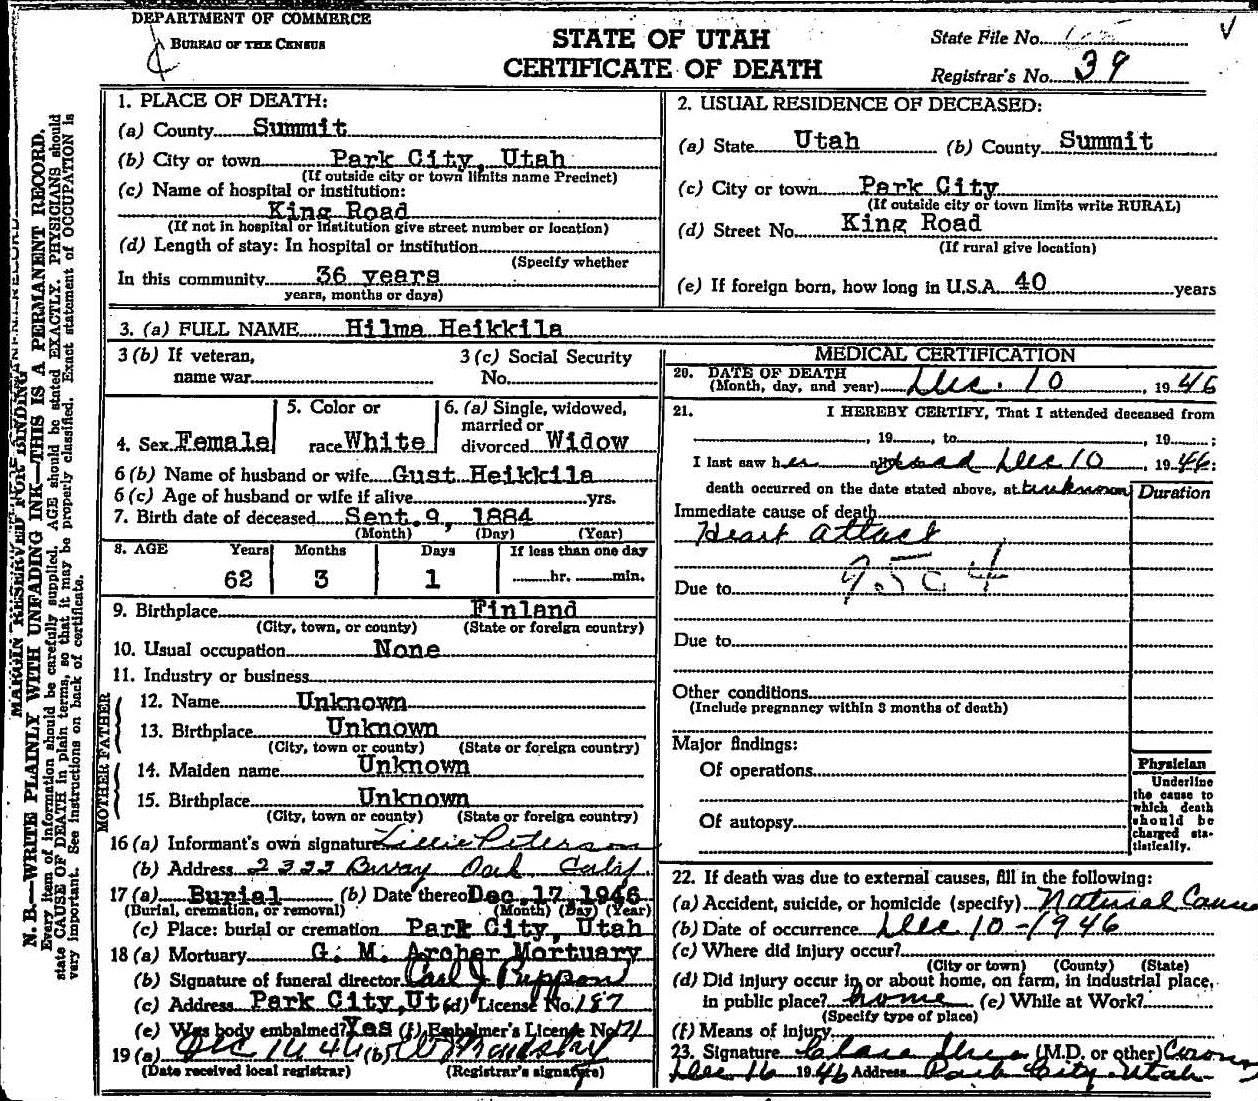 DEPARTMENT OF COMMERCE
BUREAU OF THE CENSUS
STATE OF UTAH
CERTIFICATE OF DEATH
State File No.
Registrar's No. 39
MARGIN RESERVED FOR BINDING
N. B.—WRITE PLAINLY WITH UNFADING INK—THIS IS A PERMANENT RECORD.
Every item of information should be carefully supplied. AGE should be stated EXACTLY. PHYSICIANS should
state CAUSE OF DEATH in plain terms, so that it may be properly classified. Exact statement of OCCUPATION is
very important. See instructions on back of certificate.
1. PLACE OF DEATH:
(a) County Summit
(b) City or town Park City, Utah
(If outside city or town limits name Precinct)
(c) Name of hospital or institution:
King Road
(If not in hospital or institution give street number or location)
(d) Length of stay: In hospital or institution
(Specify whether
In this community 36 years
years, months or days)
2. USUAL RESIDENCE OF DECEASED:
(a) State Utah (b) County Summit
(c) City or town Park City
(If outside city or town limits write RURAL)
(d) Street No. King Road
(If rural give location)
(e) If foreign born, how long in U.S.A. 40 years
3. (a) FULL NAME Hilma Heikkila
3 (b) If veteran, name war
3 (c) Social Security No.
4. Sex Female
5. Color or race White
6. (a) Single, widowed, married or divorced Widow
6 (b) Name of husband or wife Gust Heikkila
6 (c) Age of husband or wife if alive yrs.
7. Birth date of deceased Sept. 9, 1884
(Month) (Day) (Year)
8. AGE Years Months Days If less than one day
62 3 1 hr. min.
9. Birthplace Finland
(City, town, or county) (State or foreign country)
10. Usual occupation None
11. Industry or business
FATHER
12. Name Unknown
13. Birthplace Unknown
(City, town or county) (State or foreign country)
MOTHER
14. Maiden name Unknown
15. Birthplace Unknown
(City, town or county) (State or foreign country)
16 (a) Informant's own signature Lillie Peterson
(b) Address 2333 Bway Oak Calif
17 (a) Burial (b) Date thereof Dec. 17, 1946
(Burial, cremation, or removal) (Month) (Day) (Year)
(c) Place: burial or cremation Park City, Utah
18 (a) Mortuary G. M. Archer Mortuary
(b) Signature of funeral director Carl J
(c) Address Park City, Ut (d) License No. 187
(e) Was body embalmed? Yes (f) Embalmer's License No 171
19 (a) Dec 16 46 (b)
(Date received local registrar) (Registrar's signature)
MEDICAL CERTIFICATION
20. DATE OF DEATH
(Month, day, and year) Dec. 10, 1946
21. I HEREBY CERTIFY, That I attended deceased from
, 19 , to , 19 ;
I last saw her dead Dec 10, 1946:
death occurred on the date stated above, at unknown
Duration
Immediate cause of death
Heart attack
Due to
Due to
Other conditions
(Include pregnancy within 3 months of death)
Major findings:
Of operations
Of autopsy
Physician
Underline
the cause to
which death
should be
charged sta-
tistically.
22. If death was due to external causes, fill in the following:
(a) Accident, suicide, or homicide (specify) Natural Cause
(b) Date of occurrence Dec 10-1946
(c) Where did injury occur?
(City or town) (County) (State)
(d) Did injury occur in or about home, on farm, in industrial place,
in public place? home (e) While at Work?
(Specify type of place)
(f) Means of injury
23. Signature (M.D. or other) Coroner
Dec 16 1946 Address Park City, Utah